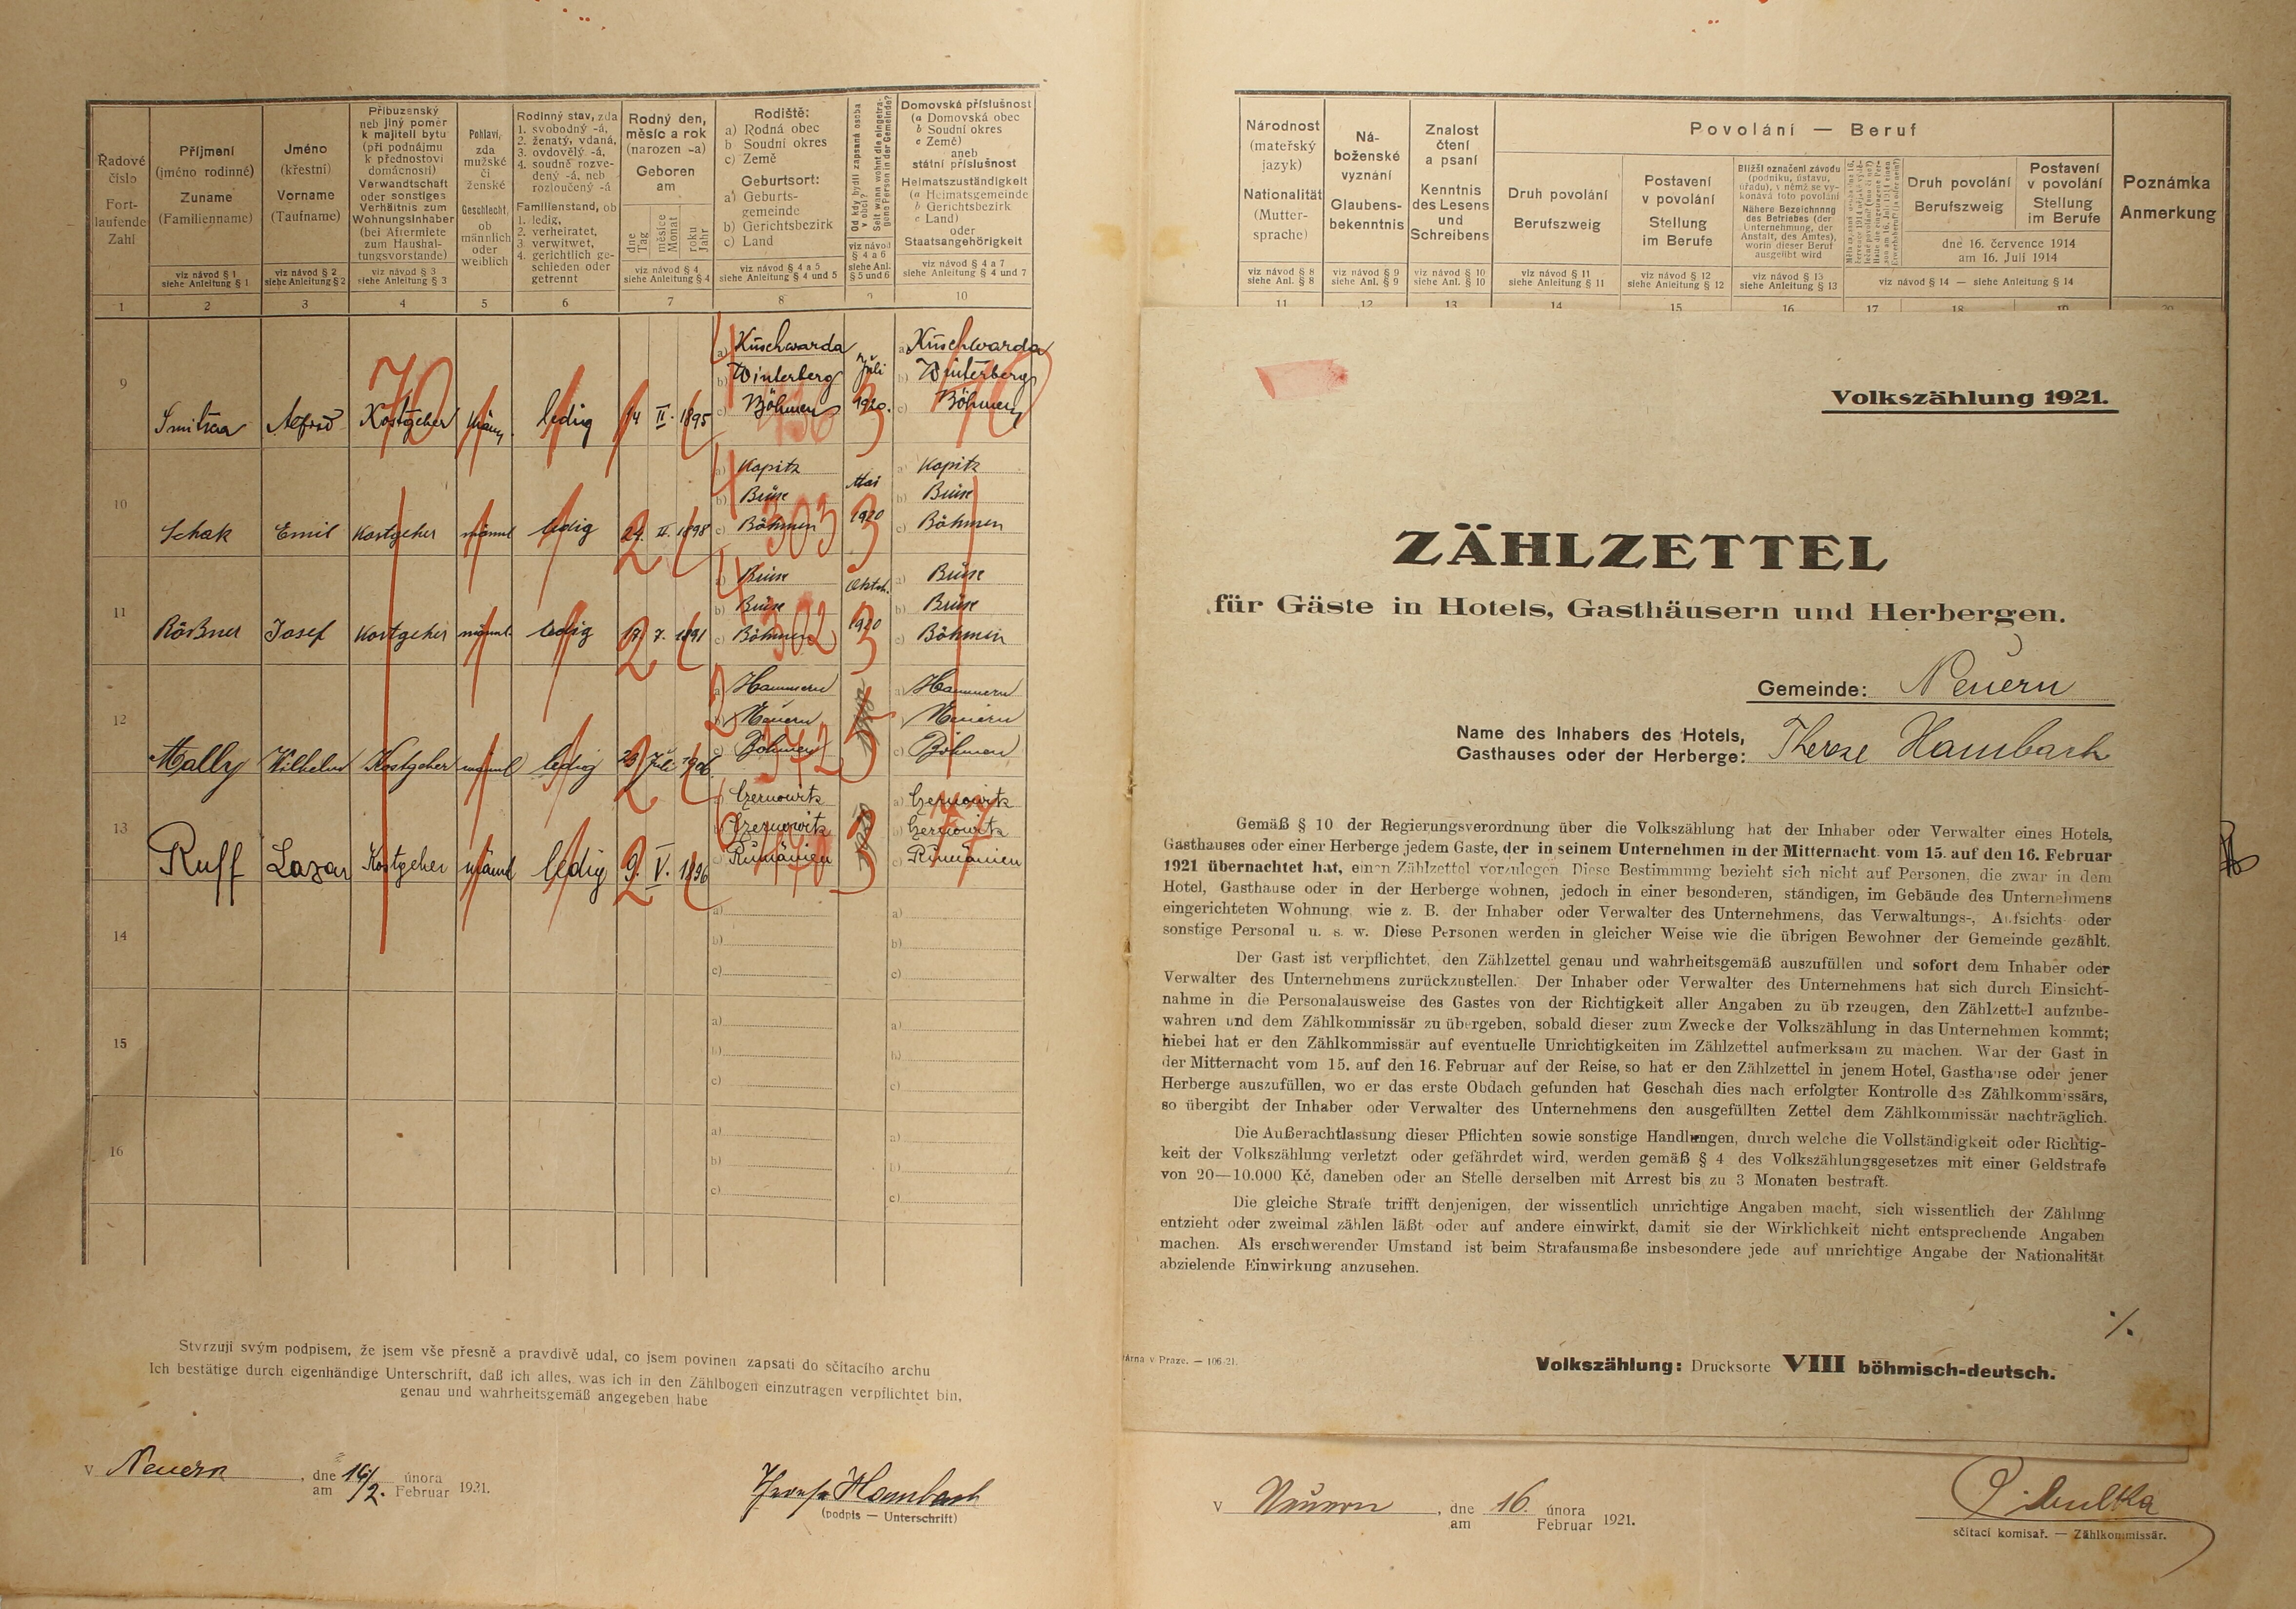 Řadové
číslo
Fort-
laufende
Zahl
1
Příjmení
(jméno rodinné)
Zuname
(Familienname)
viz návod § 1
siehe Anleitung § 1
2
Jméno
(křestní)
Vorname
(Taufname)
viz návod § 2
siehe Anleitung § 2
3
Příbuzenský
neb jiný poměr
k majiteli bytu
(při podnájmu
k přednostovi
domácnosti)
Verwandtschaft
oder sonstiges
Verhältnis zum
Wohnungsinhaber
(bei Aftermiete
zum Haushal-
tungsvorstande)
viz návod § 3
siehe Anleitung § 3
4
Pohlaví,
zda
mužské
či
ženské
Geschlecht,
ob
männlich
oder
weiblich
5
Rodinný stav, zda
1. svobodný -á,
2. ženatý, vdaná,
3. ovdovělý -á,
4. soudně rozve-
dený -á, neb
rozloučený -á
Familienstand, ob
1. ledig,
2. verheiratet,
3. verwitwet,
4. gerichtlich ge-
schieden oder
getrennt
6
Rodný den,
měsíc a rok
(narozen -a)
Geboren
am
dne
Tag
měsíce
Monat
roku
Jahr
viz návod § 4
siehe Anleitung § 4
7
Rodiště:
a) Rodná obec
b Soudní okres
c) Země
Geburtsort:
a) Geburts-
gemeinde
b) Gerichtsbezirk
c) Land
viz návod § 4 a 5
siehe Anleitung § 4 und 5
8
Od kdy bydlí zapsaná osoba
v obci?
Seit wann wohnt die eingetra-
gene Person in der Gemeinde?
viz návod
§ 4 a 6
siehe Anl.
§ 5 und 6
Domovská příslušnost
(a Domovská obec
b Soudní okres
c Země)
aneb
státní příslušnost
Heimatszuständigkeit
(a Heimatsgemeinde
b Gerichtsbezirk
c Land)
oder
Staatsangehörigkeit
viz návod § 4 a 7
siehe Anleitung § 4 und 7
10
9
70
Kostgeher
ledig
14 II. 1895
a) Kuschwarda
b) Winterberg
c) Böhmen
Juli
1920.
a) Kuschwarda
b) Winterberg
c) Böhmen
10
Schak
Emil
Kostgeher
männl
ledig
24. II. 1898
a) Kopitz
b) Brüx
c) Böhmen
303
Mai
1920
a) Kopitz
b) Brüx
c) Böhmen
11
Rößner
Josef
Kostgeher
männl.
ledig
17. 7. 1891
a) Brüx
b) Brüx
c) Böhmen
302
Oktob.
1920
a) Brüx
b) Brüx
c) Böhmen
12
Mally
Wilhelm
Kostgeher
männl
ledig
23 Juli 1906
a) Hammern
b) Neuern
c) Böhmen
372
a) Hammern
b) Neuern
c) Böhmen
13
Ruff
Lazar
Kostgeher
männl
ledig
9. V. 1896
a) Czernowitz
b) Czernowitz
c) Rumänien
a) Czernowitz
b) Czernowitz
c) Rumänien
14
a)
b)
c)
a)
b)
c)
15
a)
b)
c)
a)
b)
c)
16
a)
b)
c)
a)
b)
c)
Stvrzuji svým podpisem, že jsem vše přesně a pravdivě udal, co jsem povinen zapsati do sčítacího archu
Ich bestätige durch eigenhändige Unterschrift, daß ich alles, was ich in den Zählbogen einzutragen verpflichtet bin,
genau und wahrheitsgemäß angegeben habe
v Neuern, dne 16/2. února 1921.
am Februar
Therese Hambach
(podpis — Unterschrift)
Národnost
(mateřský
jazyk)
Nationalität
(Mutter-
sprache)
viz návod § 8
siehe Anl. § 8
11
Ná-
boženské
vyznání
Glaubens-
bekenntnis
viz návod § 9
siehe Anl. § 9
12
Znalost
čtení
a psaní
Kenntnis
des Lesens
und
Schreibens
viz návod § 10
siehe Anl. § 10
13
Povolání — Beruf
Druh povolání
Berufszweig
viz návod § 11
siehe Anleitung § 11
14
Postavení
v povolání
Stellung
im Berufe
viz návod § 12
siehe Anleitung § 12
15
Bližší označení závodu
(podniku, ústavu,
úřadu), v němž se vy-
konává toto povolání
Nähere Bezeichnung
des Betriebes (der
Unternehmung, der
Anstalt, des Amtes),
worin dieser Beruf
ausgeübt wird
viz návod § 13
siehe Anleitung § 13
16
17
Druh povolání
Berufszweig
18
Postavení
v povolání
Stellung
im Berufe
19
dne 16. července 1914
am 16. Juli 1914
viz návod § 14 — siehe Anleitung § 14
Poznámka
Anmerkung
20
Volkszählung 1921.
ZÄHLZETTEL
für Gäste in Hotels, Gasthäusern und Herbergen.
Gemeinde: Neuern
Name des Inhabers des Hotels,
Gasthauses oder der Herberge: Therese Hambach
Gemäß § 10 der Regierungsverordnung über die Volkszählung hat der Inhaber oder Verwalter eines Hotels,
Gasthauses oder einer Herberge jedem Gaste, der in seinem Unternehmen in der Mitternacht vom 15. auf den 16. Februar
1921 übernachtet hat, einen Zählzettel vorzulegen Diese Bestimmung bezieht sich nicht auf Personen, die zwar in dem
Hotel, Gasthause oder in der Herberge wohnen, jedoch in einer besonderen, ständigen, im Gebäude des Unternehmens
eingerichteten Wohnung, wie z. B. der Inhaber oder Verwalter des Unternehmens, das Verwaltungs-, Aufsichts- oder
sonstige Personal u. s. w. Diese Personen werden in gleicher Weise wie die übrigen Bewohner der Gemeinde gezählt.
Der Gast ist verpflichtet, den Zählzettel genau und wahrheitsgemäß auszufüllen und sofort dem Inhaber oder
Verwalter des Unternehmens zurückzustellen. Der Inhaber oder Verwalter des Unternehmens hat sich durch Einsicht-
nahme in die Personalausweise des Gastes von der Richtigkeit aller Angaben zu üb rzeugen, den Zählzettel aufzube-
wahren und dem Zählkommissär zu übergeben, sobald dieser zum Zwecke der Volkszählung in das Unternehmen kommt;
hiebei hat er den Zählkommissär auf eventuelle Unrichtigkeiten im Zählzettel aufmerksam zu machen. War der Gast in
der Mitternacht vom 15. auf den 16. Februar auf der Reise, so hat er den Zählzettel in jenem Hotel, Gasthause oder jener
Herberge auszufüllen, wo er das erste Obdach gefunden hat Geschah dies nach erfolgter Kontrolle des Zählkommissärs,
so übergibt der Inhaber oder Verwalter des Unternehmens den ausgefüllten Zettel dem Zählkommissär nachträglich.
Die Außerachtlassung dieser Pflichten sowie sonstige Handlungen, durch welche die Vollständigkeit oder Richtig-
keit der Volkszählung verletzt oder gefährdet wird, werden gemäß § 4 des Volkszählungsgesetzes mit einer Geldstrafe
von 20—10.000 Kč, daneben oder an Stelle derselben mit Arrest bis zu 3 Monaten bestraft.
Die gleiche Strafe trifft denjenigen, der wissentlich unrichtige Angaben macht, sich wissentlich der Zählung
entzieht oder zweimal zählen läßt oder auf andere einwirkt, damit sie der Wirklichkeit nicht entsprechende Angaben
machen. Als erschwerender Umstand ist beim Strafausmaße insbesondere jede auf unrichtige Angabe der Nationalität
abzielende Einwirkung anzusehen.
./.
árna v Praze. — 106/21.
Volkszählung: Drucksorte VIII böhmisch-deutsch.
v Neuern, dne 16. února 1921.
am Februar
sčítací komisař. — Zählkommissär.